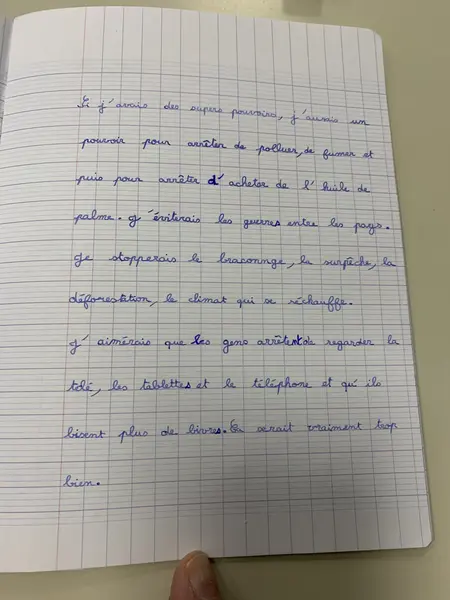 Si j'avais des supers pouvoirs, j'aurais un
pouvoir pour arrêter de polluer, de fumer et
puis pour arrêter d'acheter de l'huile de
palme. J'éviterais les guerres entre les pays.
Je stopperais le braconnge, la surpêche, la
déforestation, le climat qui se réchauffe.
J'aimerais que les gens arrêtent de regarder la
télé, les tablettes et le téléphone et qu'ils
lisent plus de livres. Ça serait vraiment trop
bien.